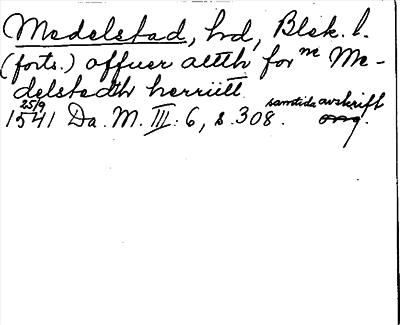 Medelstad, hd, Blek. l.
(forts.) offuer alth for ne Me-
delstadh herriitt
25/9 samtida avskrift
1541 Da. M. III: 6, s. 308. orig.